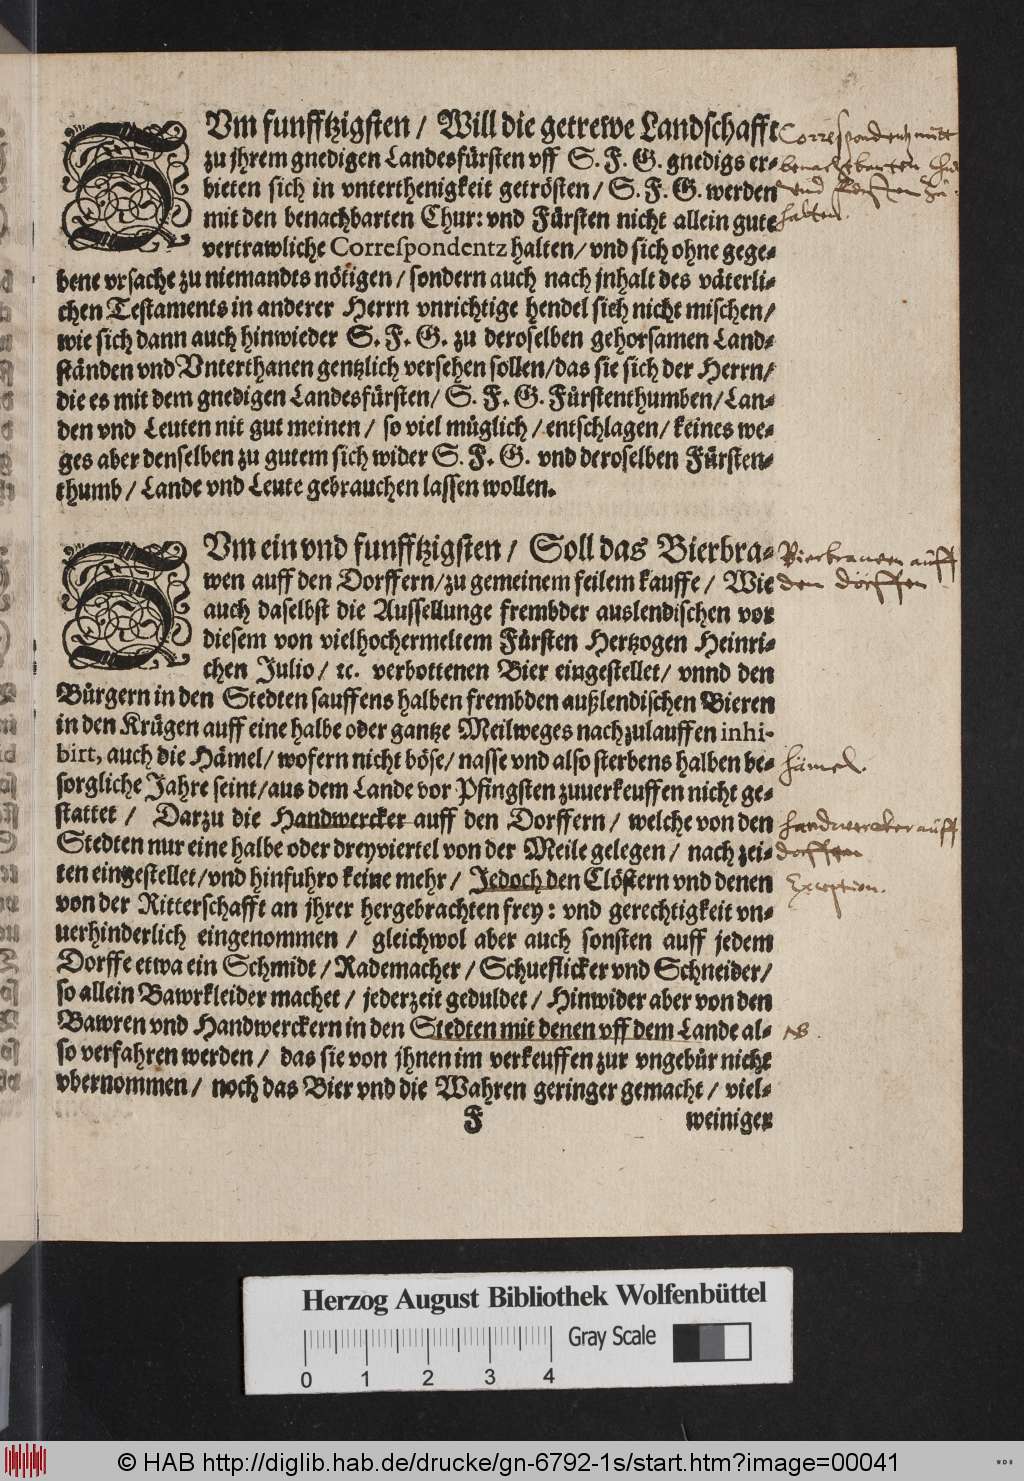 ZUm funfftzigsten / Will die getrewe Landschafft
zu jhrem gnedigen Landesfürsten vff S. F. G. gnedigs er-
bieten sich in vnterthenigkeit getrösten / S. F. G. werden
mit den benachbarten Chur: vnd Fürsten nicht allein gute
vertrawliche Correspondentz halten / vnd sich ohne gege-
bene vrsache zu niemandts nötigen / sondern auch nach jnhalt des väterli-
chen Testaments in anderer Herrn vnrichtige hendel sich nicht mischen /
wie sich dann auch hinwieder S. F. G. zu deroselben gehorsamen Land-
ständen vnd Vnterthanen gentzlich versehen sollen / das sie sich der Herrn /
die es mit dem gnedigen Landesfürsten / S. F. G. Fürstenthumben / Lan-
den vnd Leuten nit gut meinen / so viel müglich / entschlagen / keines we-
ges aber denselben zu gutem sich wider S. F. G. vnd deroselben Fürsten-
thumb / Lande vnd Leute gebrauchen lassen wollen.
Correspondentz mitt
benachbarten Chur
vnd Fürsten zu
halten.
ZUm ein vnd funfftzigsten / Soll das Bierbra-
wen auff den Dorffern / zu gemeinem feilem kauffe / Wie
auch daselbst die Aussellunge frembder auslendischen vor
diesem von vielhochermeltem Fürsten Hertzogen Heinri-
chen Julio / ꝛc. verbottenen Bier eingestellet / vnnd den
Bürgern in den Stedten sauffens halben frembden außlendischen Bieren
in den Krügen auff eine halbe oder gantze Meilweges nachzulauffen inhi-
birt, auch die Hämel / wofern nicht böse / nasse vnd also sterbens halben be-
sorgliche Jahre seint / aus dem Lande vor Pfingsten zuuerkeuffen nicht ge-
stattet / Darzu die Handwercker auff den Dorffern / welche von den
Stedten nur eine halbe oder dreyviertel von der Meile gelegen / nach zei-
ten eingestellet / vnd hinfuhro keine mehr / Jedoch den Clöstern vnd denen
von der Ritterschafft an jhrer hergebrachten frey: vnd gerechtigkeit vn-
uerhinderlich eingenommen / gleichwol aber auch sonsten auff jedem
Dorffe etwa ein Schmidt / Rademacher / Schueflicker vnd Schneider /
so allein Bawrkleider machet / jederzeit geduldet / Hinwider aber von den
Bawren vnd Handwerckern in den Stedten mit denen vff dem Lande al-
so verfahren werden / das sie von jhnen im verkeuffen zur vngebür nicht
vbernommen / noch das Bier vnd die Wahren geringer gemacht / viel-
F weiniger
Bierbrawen auff
den dörffen
Hämel.
Handwercker auff
dorffern
Exception.
NB.
Herzog August Bibliothek Wolfenbüttel
Gray Scale
0 1 2 3 4
© HAB http://diglib.hab.de/drucke/gn-6792-1s/start.htm?image=00041